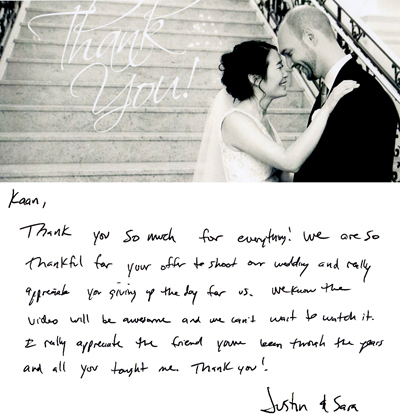 Thank
You!
Kaan,
Thank you so much for everything! We are so
thankful for your offer to shoot our wedding and really
appreciate you giving up the day for us. We know the
video will be awesome and we can't wait to watch it.
I really appreciate the friend youve been through the years
and all you taught me. Thank you!
Justin & Sara